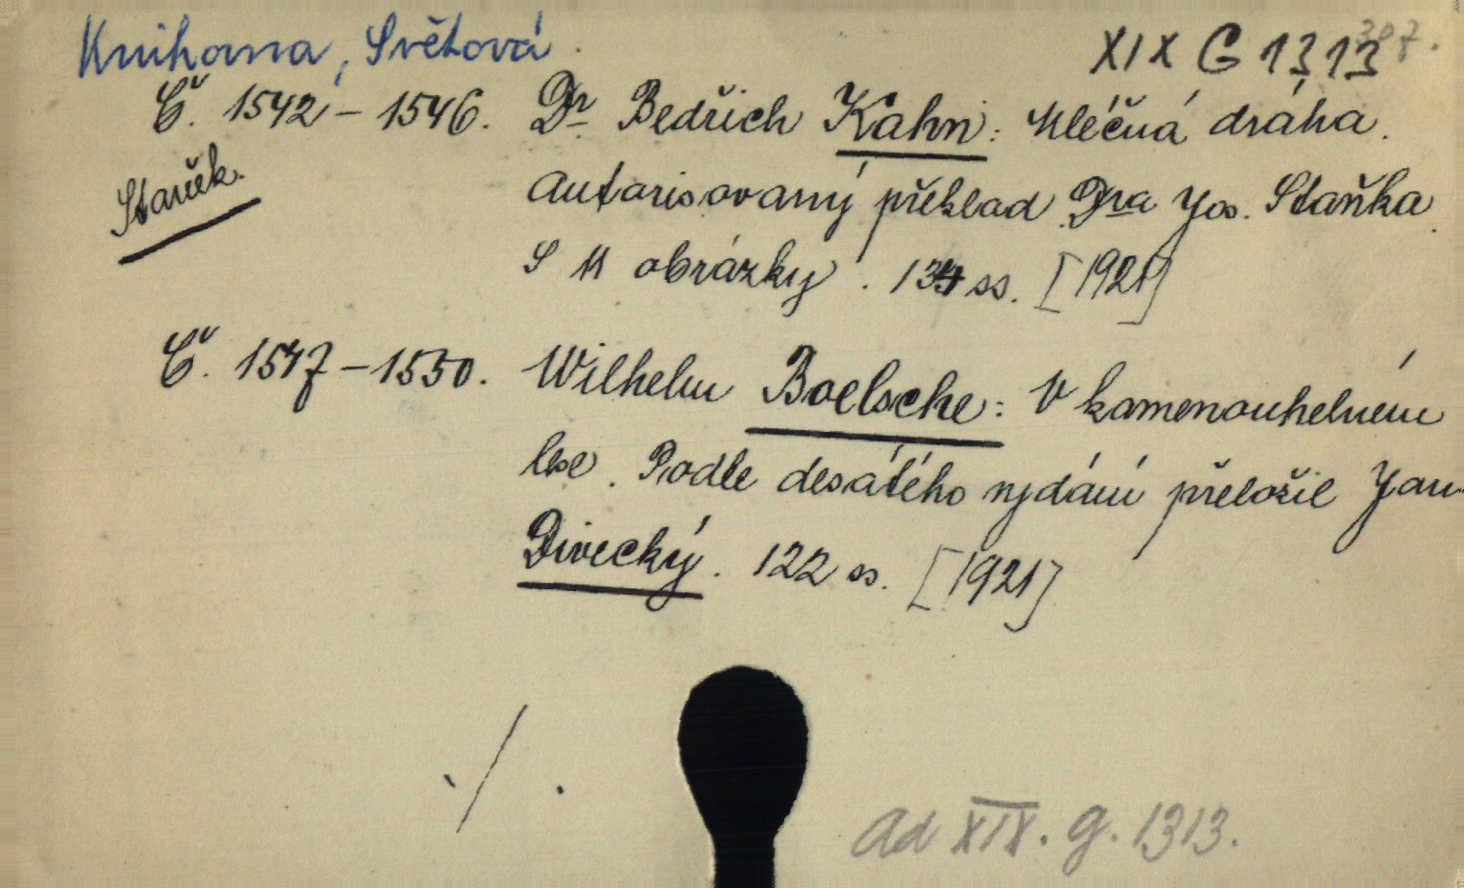 Knihovna, Světová
XIX G 1313
307.
Č. 1542 – 1546. Dr Bedřich Kahn: Mléčná dráha.
Staněk.
Autorisovaný překlad Dra Jos. Staňka.
S 11 obrázky. 134 ss. [1921]
Č. 1547 – 1550. Wilhelm Boelsche: V kamenouhelném
lese. Podle desátého vydání přeložil Jan
Divecký. 122 ss. [1921]
./.
Ad XIX. g. 1313.